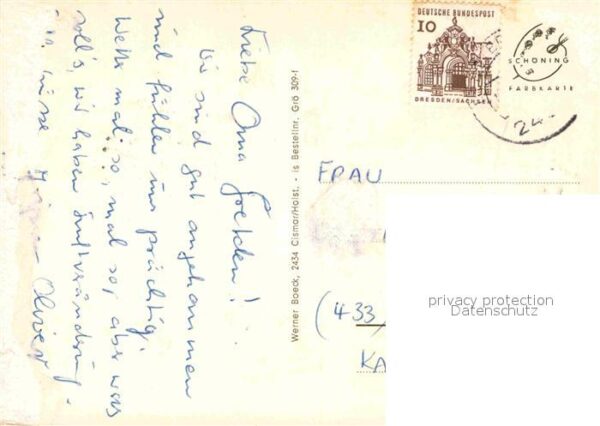 Liebe Oma Gretchen!
Wir sind gut angekommen
und fühlen uns prächtig.
Wetter mal so, mal so, aber was
soll's, wir haben Luftveränderung.
Oliver
Werner Boeck, 2434 Cismar/Holst. - is Bestellnr. Grö 309-1
DEUTSCHE BUNDESPOST
10
DRESDEN/SACHSEN
SCHÖNING
FARBKARTE
24
FRAU
(433
KA
privacy protection
Datenschutz